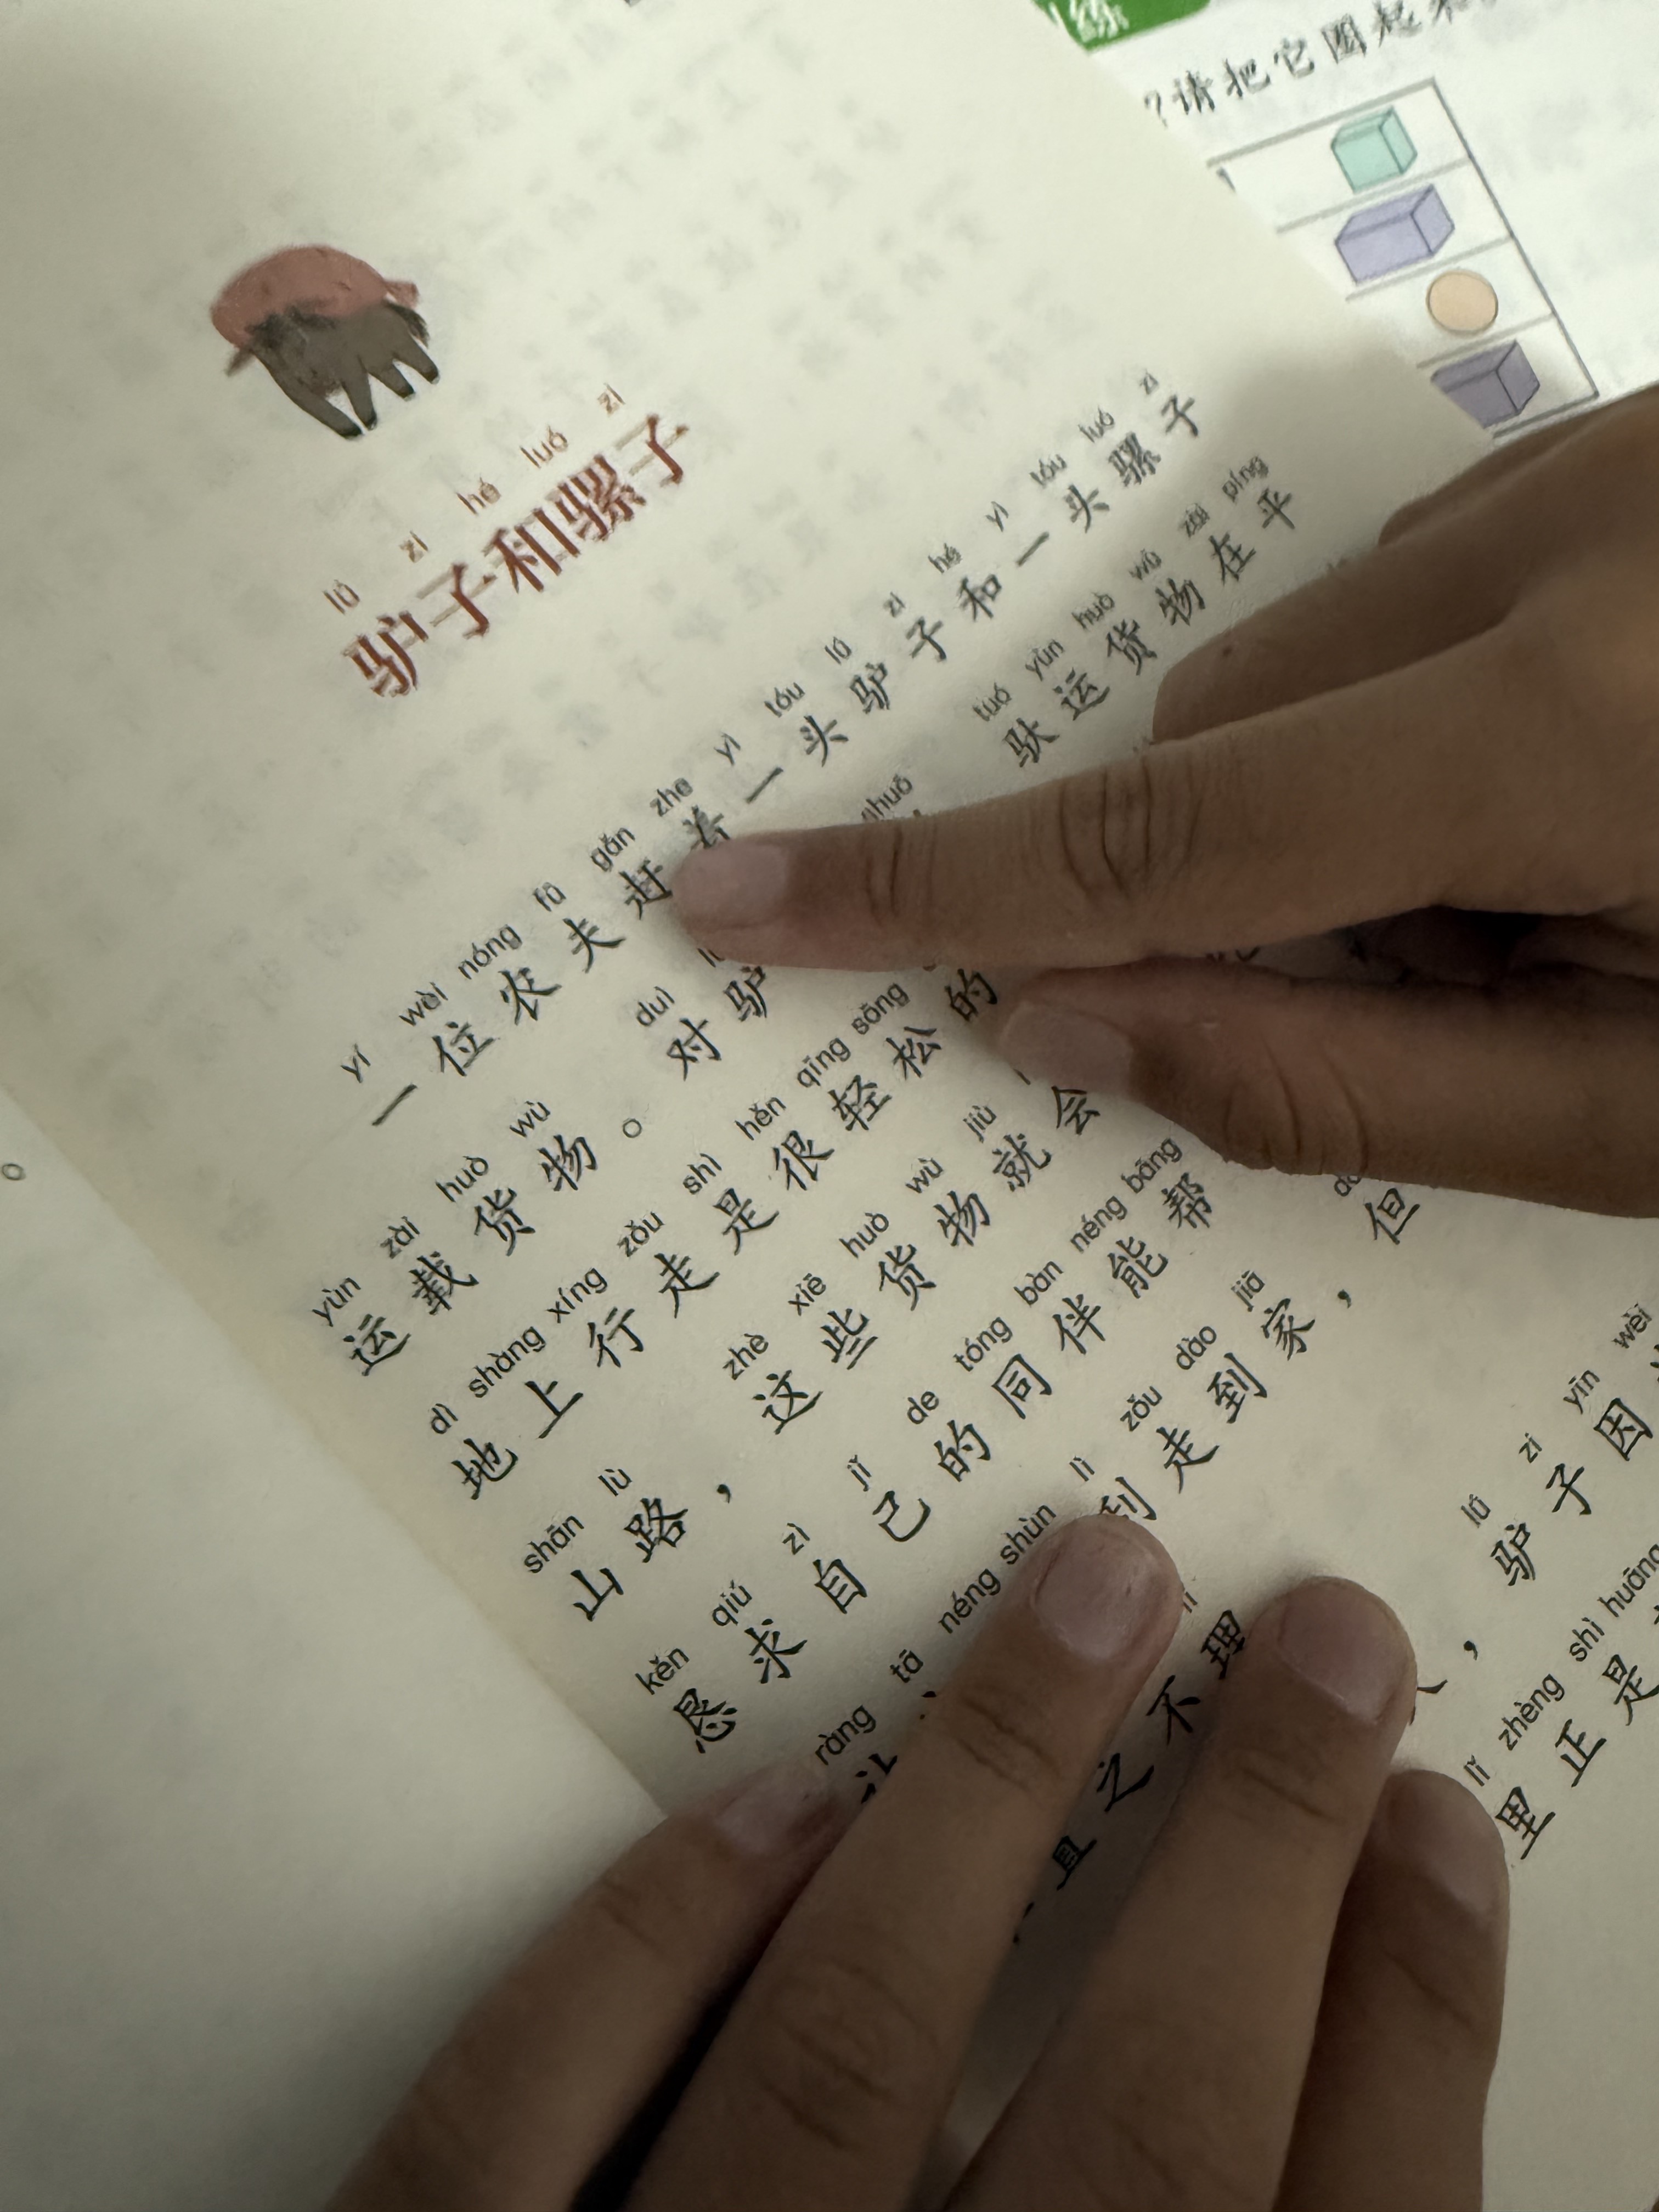 练
?请把它圈起来
lǘ zi hé luó zi
驴子和骡子
yí wèi nóng fū gǎn zhe yì tóu lǘ zi hé yì tóu luó zi
一位农夫赶着一头驴子和一头骡子
yùn zài huò wù duì huó tuó yùn huò wù zài píng
运载货物。对驴 驮运货物在平
dì shàng xíng zǒu shì hěn qīng sōng
地上行走是很轻松的
shān lù zhè xiē huò wù jiù
山路,这些货物就会
kěn qiú zì jǐ de tóng bàn néng bāng
恳求自己的同伴能帮
ràng tā néng shùn lì zǒu dào jiā
让 利走到家, 但
之不理
lǘ zi yīn wèi
, 驴子因
lǐ zhèng shì huāng
里正是